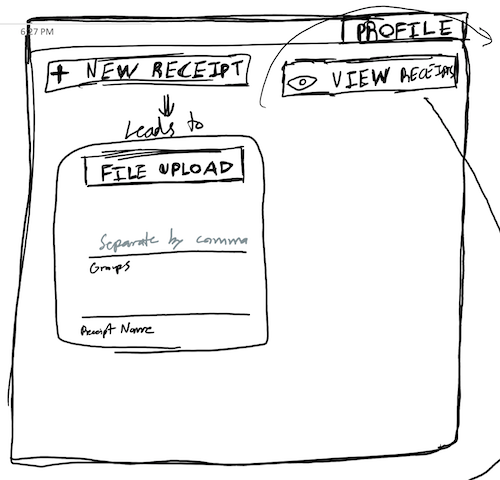 6:27 PM
PROFILE
+ NEW RECEIPT
VIEW RECEIPTS
Leads to
FILE UPLOAD
Separate by comma
Groups
Receipt Name